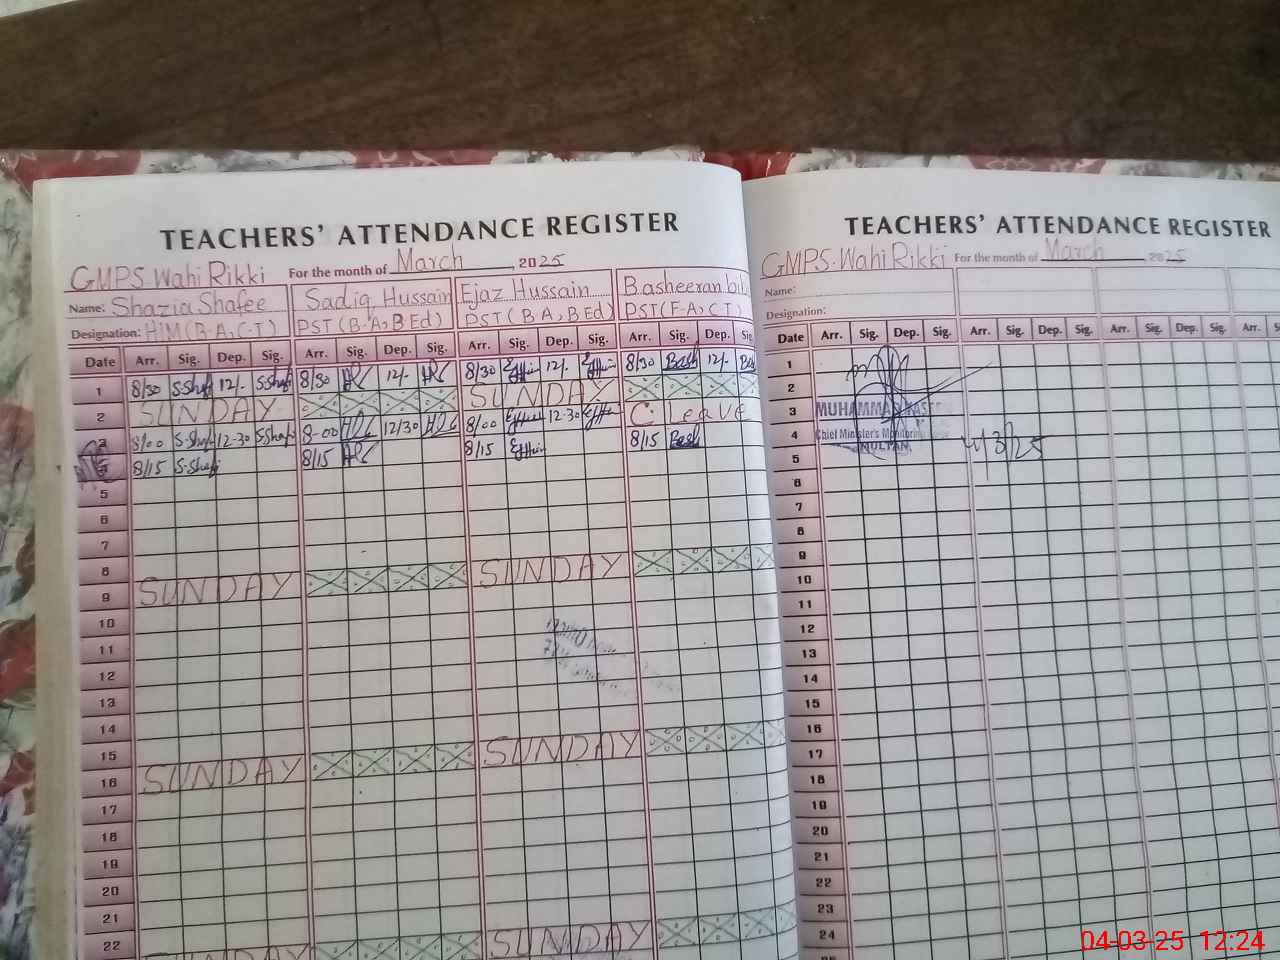 TEACHERS' ATTENDANCE REGISTER
GMPS Wahi Rikki For the month of March 2025
Name: Shazia Shafee Sadiq Hussain Ejaz Hussain Basheeran bib
Designation: H/M (B-A, C-T) PST (B-A, B Ed) PST (B A, B Ed) PST (F-A, C T)
Date Arr. Sig. Dep. Sig. Arr. Sig. Dep. Sig. Arr. Sig. Dep. Sig. Arr. Sig. Dep. Sig.
1 8/30 S.Shafi 12/- S.Shafi 8/30 12/- 8/30 12/- 8/30 Bash 12/-
2 SUNDAY SUNDAY
3 8/00 S.Shafi 12-30 S.Shafi 8-00 12/30 8/00 12-30 C. Leave
8/15 S.Shafi 8/15 8/15 8/15 Bash
5
6
7
8
9 SUNDAY SUNDAY
10
11
12
13
14
15
16 SUNDAY SUNDAY
17
18
19
20
21
22
SUNDAY SUNDAY
TEACHERS' ATTENDANCE REGISTER
GMPS. Wahi Rikki For the month of March 2025
Name:
Designation:
Date Arr. Sig. Dep. Sig. Arr. Sig. Dep. Sig. Arr. Sig. Dep. Sig. Arr.
1
2
3 MUHAMMAD
4 Chief Minister's Monitoring 4/3/25
MULTAN
5
6
7
8
9
10
11
12
13
14
15
16
17
18
19
20
21
22
23
24
04-03-25 12:24